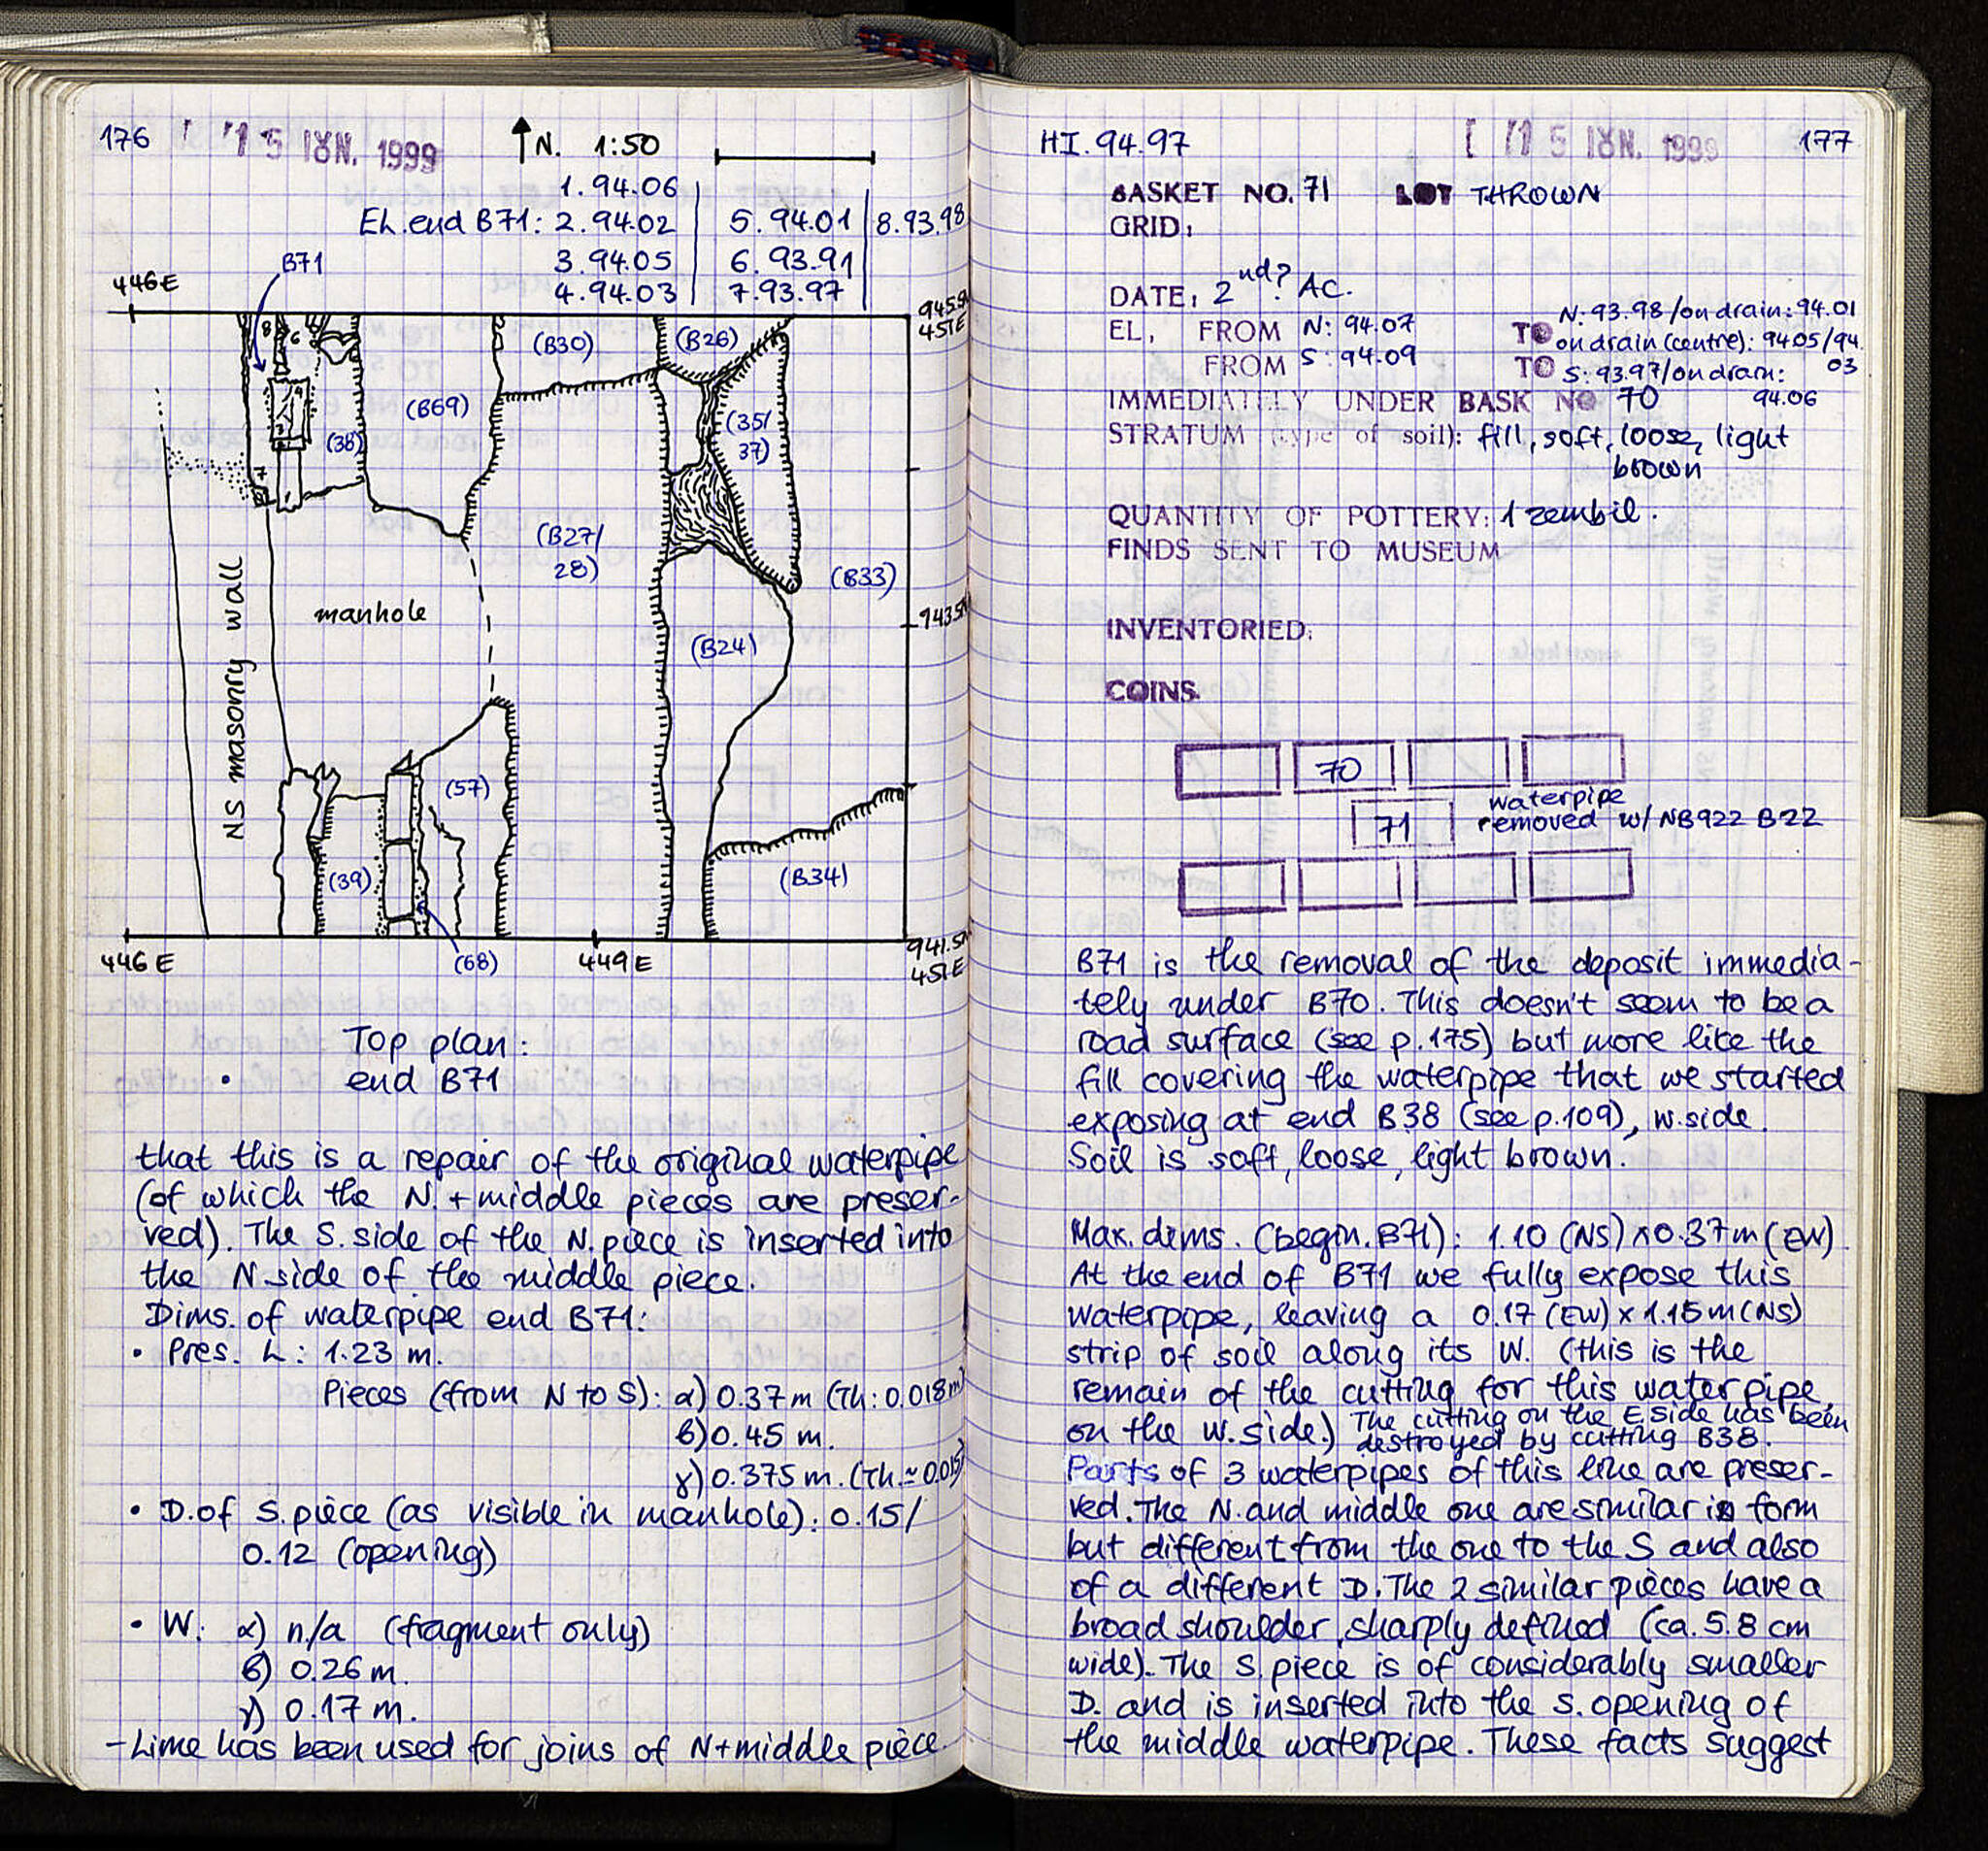 176
15 ΙΟΥΝ. 1999
N. 1:50
1. 94.06
El. end B71: 2. 94.02
3. 94.05
4. 94.03
5. 94.01
6. 93.91
7. 93.97
8. 93.98
B71
446 E
945.5N
451E
8
6
(B30)
(B26)
(B69)
(38)
(35/
37)
7
(B27/
28)
(B33)
NS masonry wall
manhole
943.5N
(B24)
(57)
(39)
(B34)
(68)
446 E
449 E
941.5N
451E
Top plan:
end B71
that this is a repair of the original waterpipe
(of which the N. + middle pieces are preser-
ved). The S. side of the N. piece is inserted into
the N side of the middle piece.
Dims. of waterpipe end B71:
• Pres. L: 1.23 m.
Pieces (from N to S): α) 0.37 m (Th: 0.018 m)
β) 0.45 m.
γ) 0.375 m. (Th. ≃ 0.015)
• D. of S. piece (as visible in manhole): 0.15/
0.12 (opening)
• W: α) n/a (fragment only)
β) 0.26 m.
γ) 0.17 m.
- Lime has been used for joins of N + middle piece.
HI. 94.97
15 ΙΟΥΝ. 1999
177
BASKET NO. 71 LOT THROWN
GRID:
DATE: 2nd? AC.
EL, FROM N: 94.07 TO N: 93.98 / on drain: 94.01
on drain (centre): 94.05/94.
03
FROM S: 94.09 TO S: 93.97/on drain:
94.06
IMMEDIATELY UNDER BASK NO 70
STRATUM (type of soil): fill, soft, loose, light
brown
QUANTITY OF POTTERY: 1 zembil.
FINDS SENT TO MUSEUM
INVENTORIED:
COINS.
70
71
waterpipe
removed w/ NB922 B22
B71 is the removal of the deposit immedia-
tely under B70. This doesn't seem to be a
road surface (see p.175) but more like the
fill covering the waterpipe that we started
exposing at end B38 (see p.109), W. side.
Soil is soft, loose, light brown.
Max. dims. (begin. B71): 1.10 (NS) x 0.37 m (EW).
At the end of B71 we fully expose this
waterpipe, leaving a 0.17 (EW) x 1.15 m (NS)
strip of soil along its W. (this is the
remain of the cutting for this waterpipe,
on the W. side.) The cutting on the E. side has been
destroyed by cutting B38.
Parts of 3 waterpipes of this line are preser-
ved. The N. and middle one are similar in form
but different from the one to the S and also
of a different D. The 2 similar pieces have a
broad shoulder, sharply defined (ca. 5.8 cm
wide). The S. piece is of considerably smaller
D. and is inserted into the S. opening of
the middle waterpipe. These facts suggest